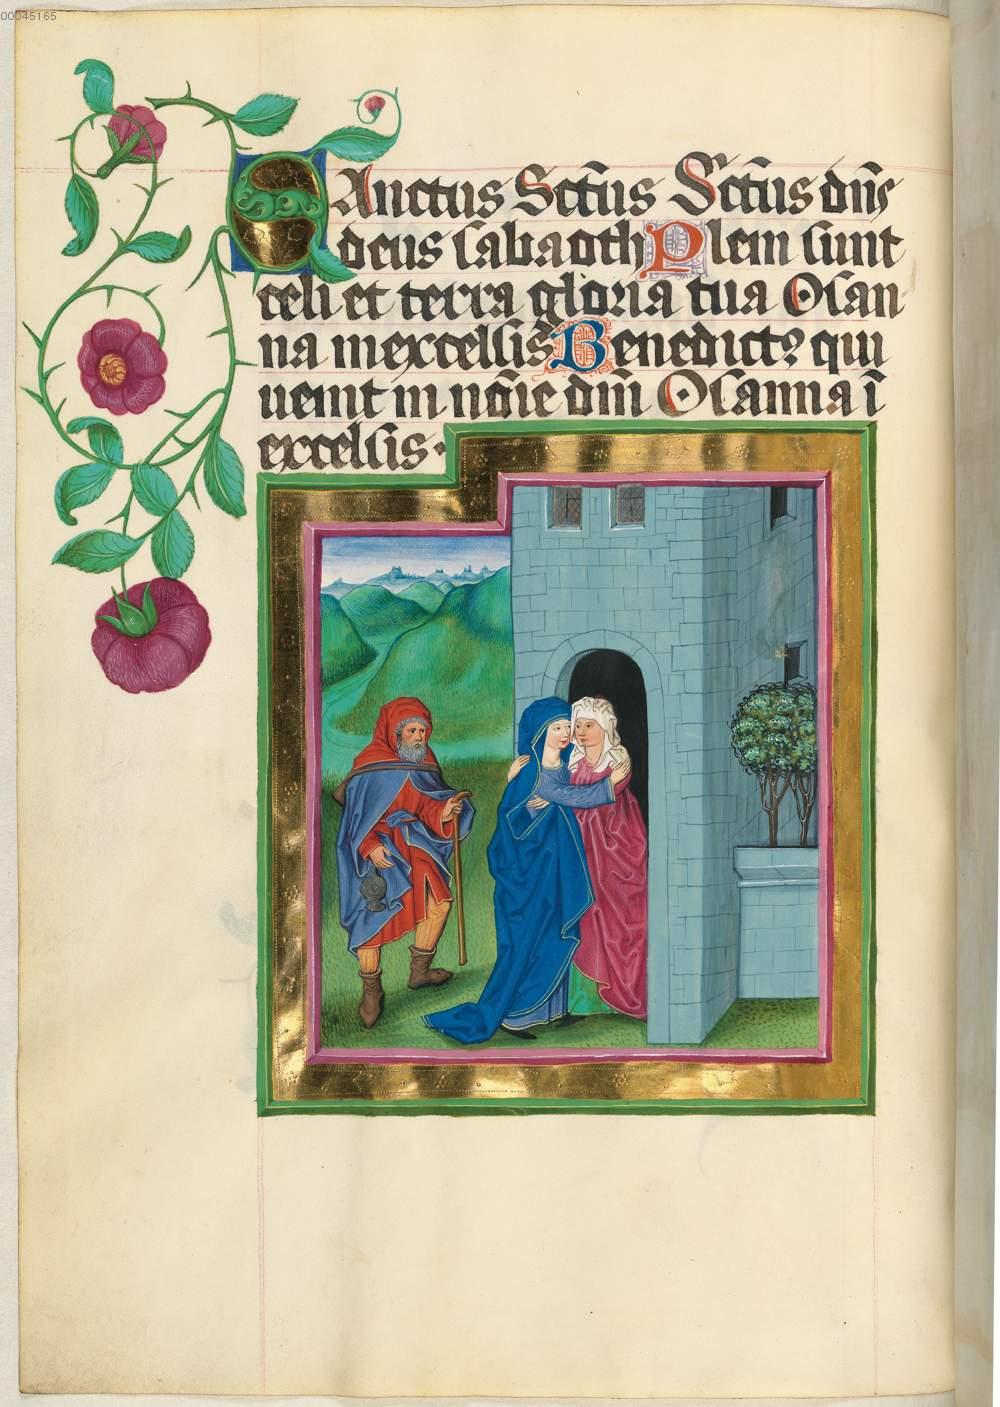 00045165
SAnctus Sctus Sctus dns
deus sabaoth Pleni sunt
celi et terra gloria tua Osan
na inexcelsis Benedictꝰ qui
uenit in nōie dn̄i Osanna ī
excelsis.